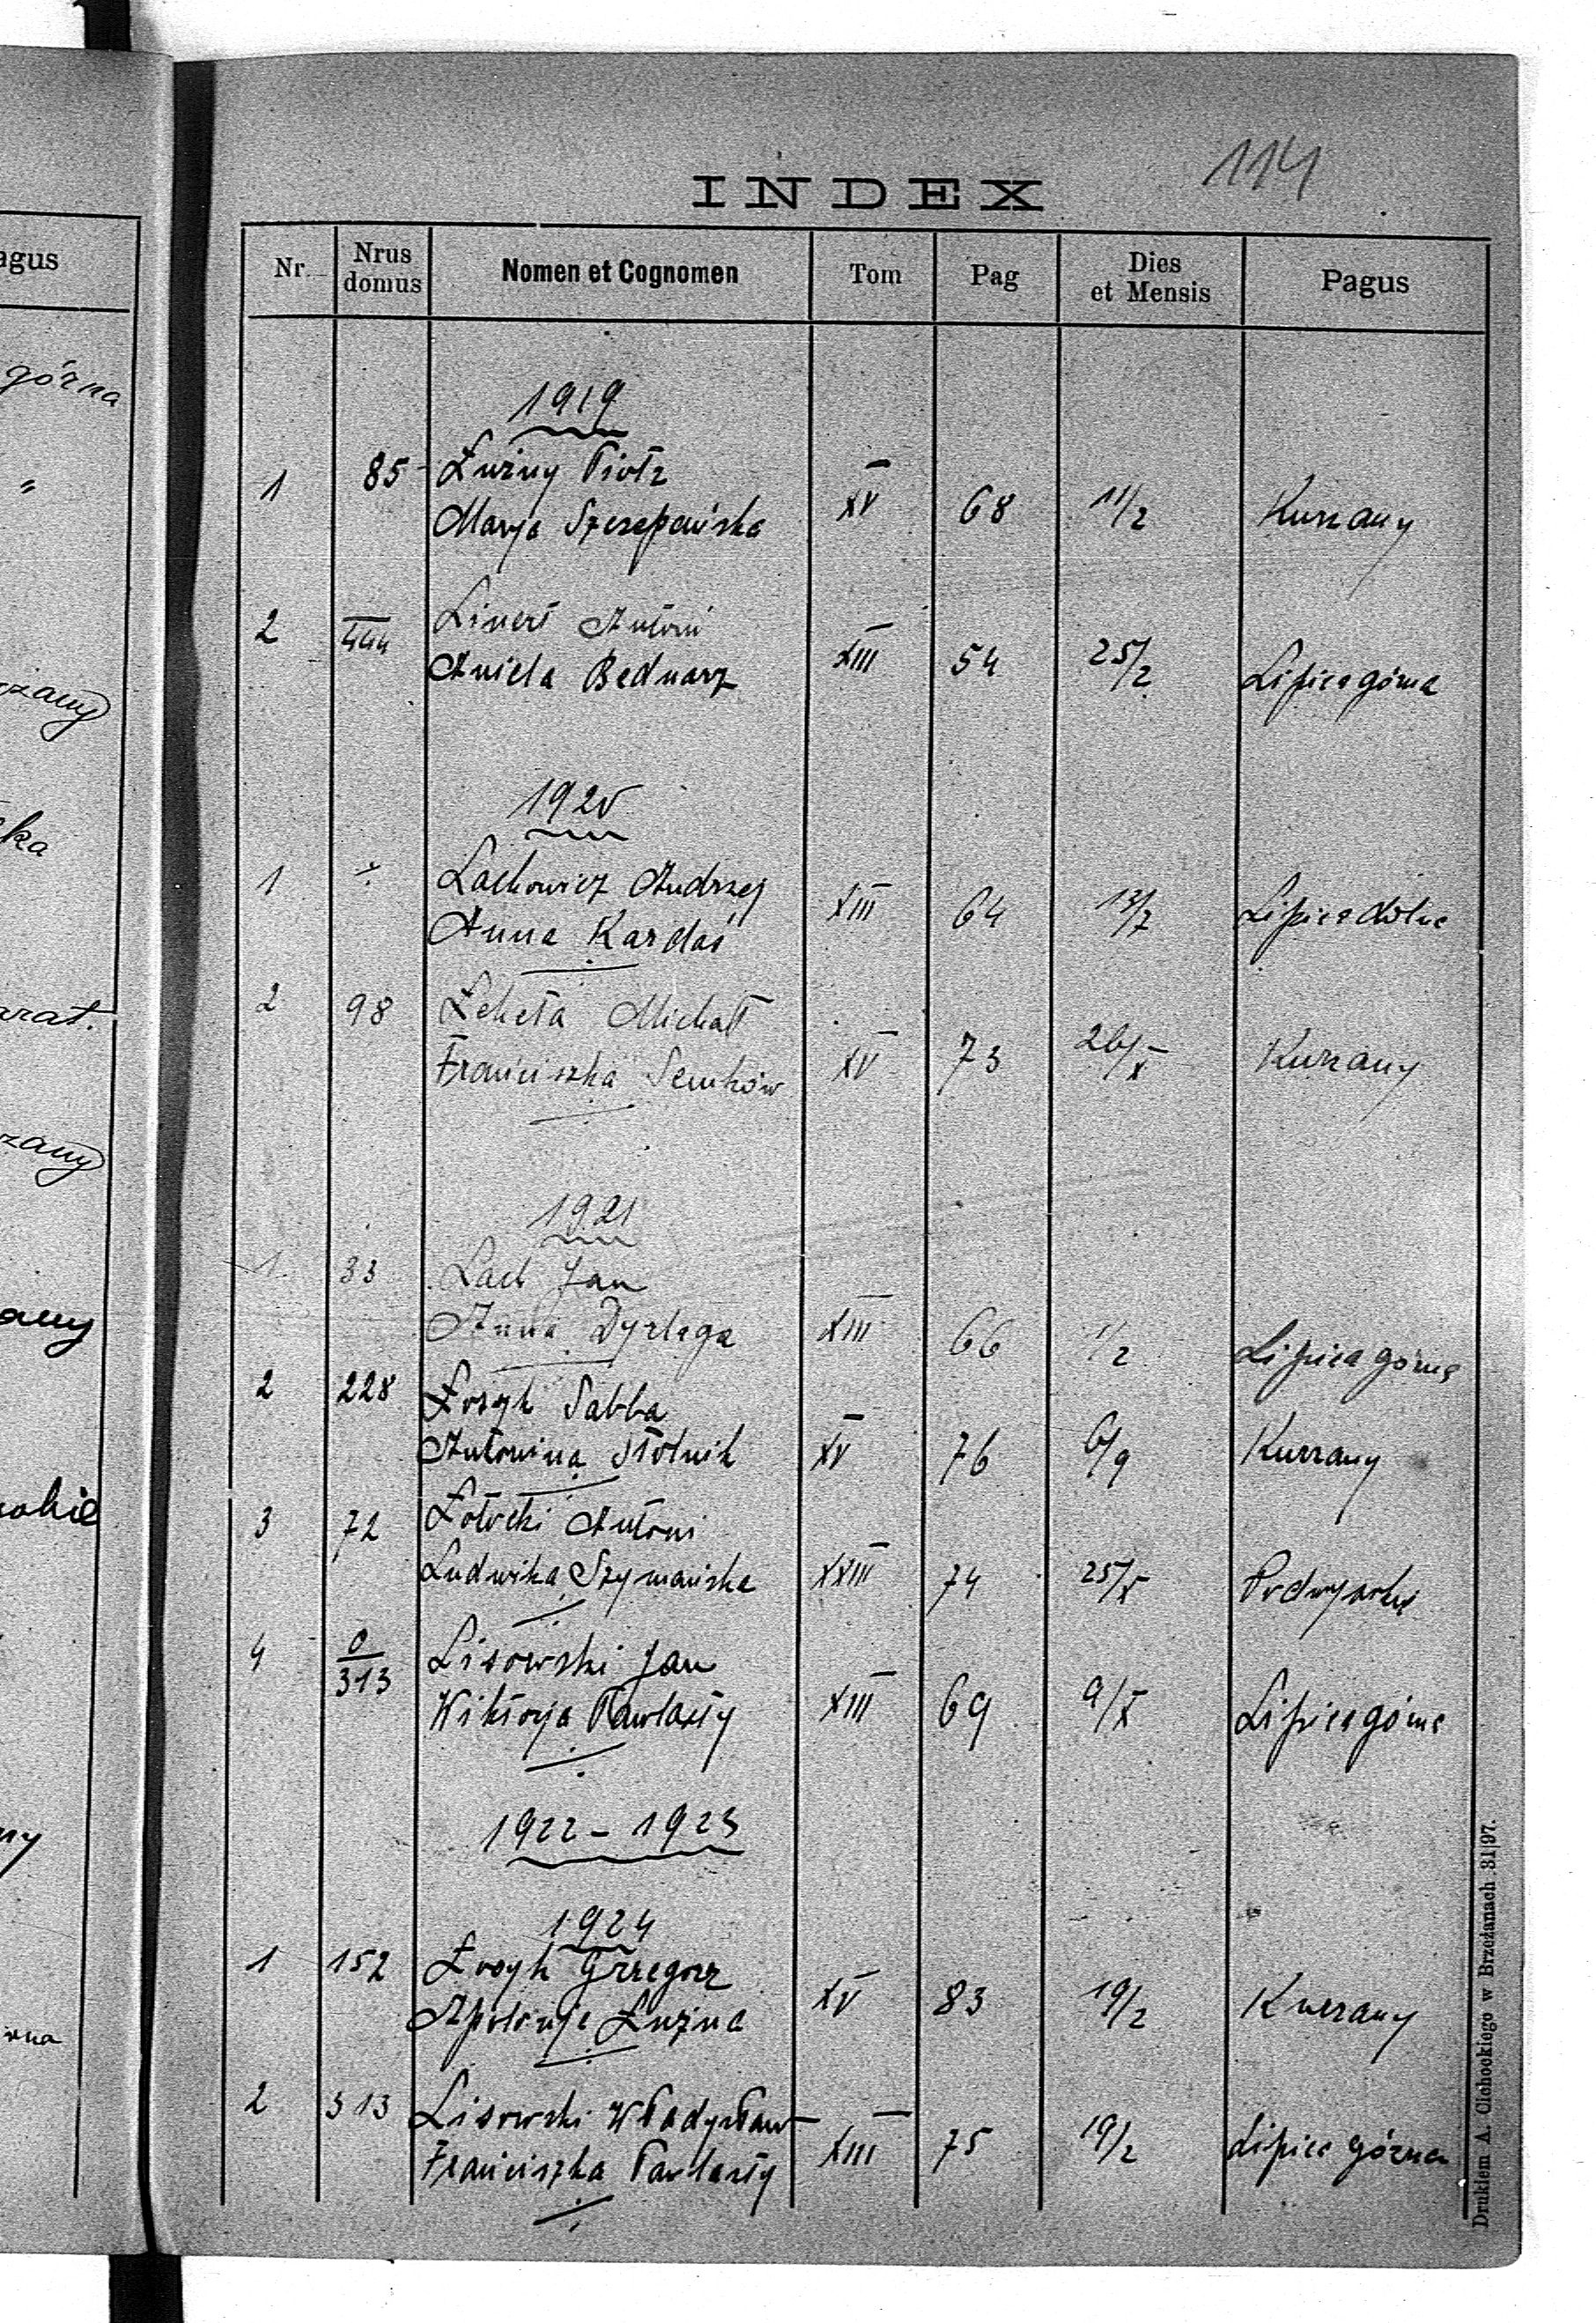 agus
górna
"
zany
ka
arat.
zany
any
ny
114
INDEX
Nr
Nrus domus
Nomen et Cognomen
Tom
Pag
Dies et Mensis
Pagus
1919
1 85 Łuźny Piotr
Marja Szczepańska XV 68 11/2 Kurzany
2 444 Linert Antoni
Aniela Bednarz XIII 54 25/2 Lipica górna
1920
1 Lachowicz Andrzej
Anna Kardaś XIII 64 13/7 Lipica dolna
2 98 Łeheta Michał
Franciszka Semków XV 73 26/X Kurzany
1921
1 33 Lach Jan
Anna Dyrlaga XIII 66 1/2 Lipica górna
2 228 Łosyk Sabba
Antonina Stolnik XV 76 6/9 Kurzany
3 72 Łotocki Antoni
Ludwika Szymańska XXIII 74 25/X Podwysokie
4 0/313 Lisowski Jan
Wiktorja Pawlasty XIII 69 9/X Lipica górna
1922 - 1923
1924
1 152 Łosyk Grzegorz
Apolonja Łuźna XV 83 19/2 Kurzany
2 313 Lisowski Władysław
Franciszka Pawlasty XIII 75 19/2 Lipica Górna
Drukiem A. Cichockiego w Brzeżanach 31|97.